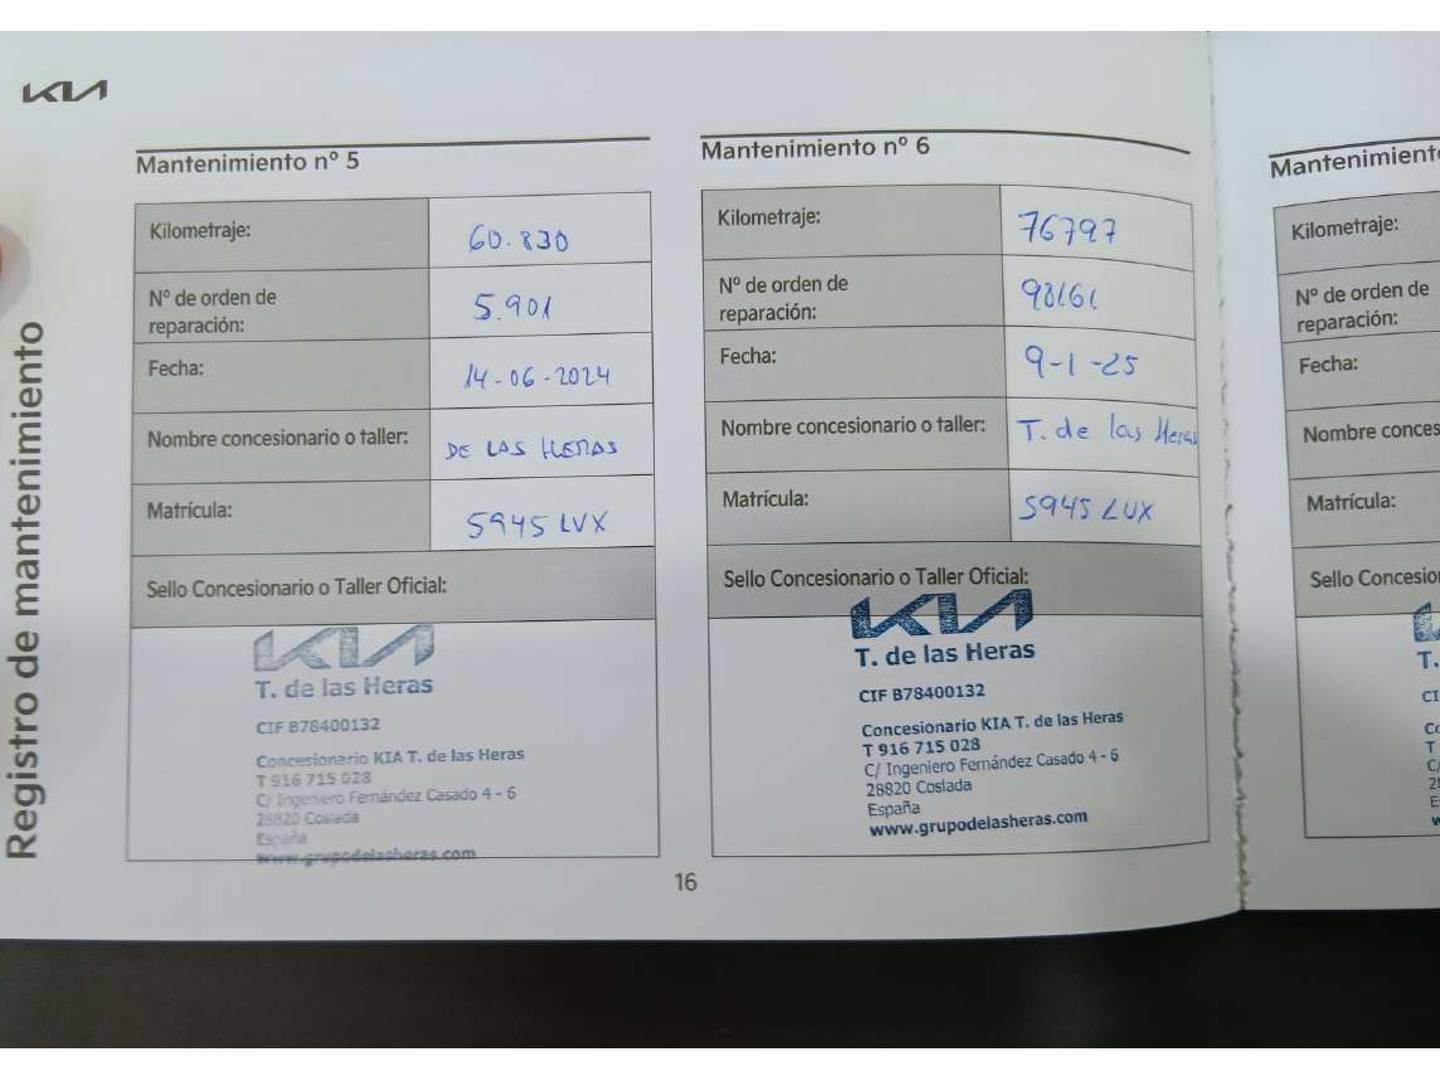 KIA
Registro de mantenimiento
Mantenimiento nº 5
Kilometraje: 60.830
Nº de orden de reparación: 5.901
Fecha: 14-06-2024
Nombre concesionario o taller: DE LAS HERAS
Matrícula: 5945 LVX
Sello Concesionario o Taller Oficial:
KIA
T. de las Heras
CIF B78400132
Concesionario KIA T. de las Heras
T 916 715 028
C/ Ingeniero Fernández Casado 4 - 6
28820 Coslada
España
www.grupodelasheras.com
Mantenimiento nº 6
Kilometraje: 76797
Nº de orden de reparación:
Fecha: 9-1-25
Nombre concesionario o taller: T. de las Heras
Matrícula: 5945 LVX
Sello Concesionario o Taller Oficial:
KIA
T. de las Heras
CIF B78400132
Concesionario KIA T. de las Heras
T 916 715 028
C/ Ingeniero Fernández Casado 4 - 6
28820 Coslada
España
www.grupodelasheras.com
16
Mantenimient
Kilometraje:
Nº de orden de
reparación:
Fecha:
Nombre conces
Matrícula:
Sello Concesio
T.
CI
T
C/